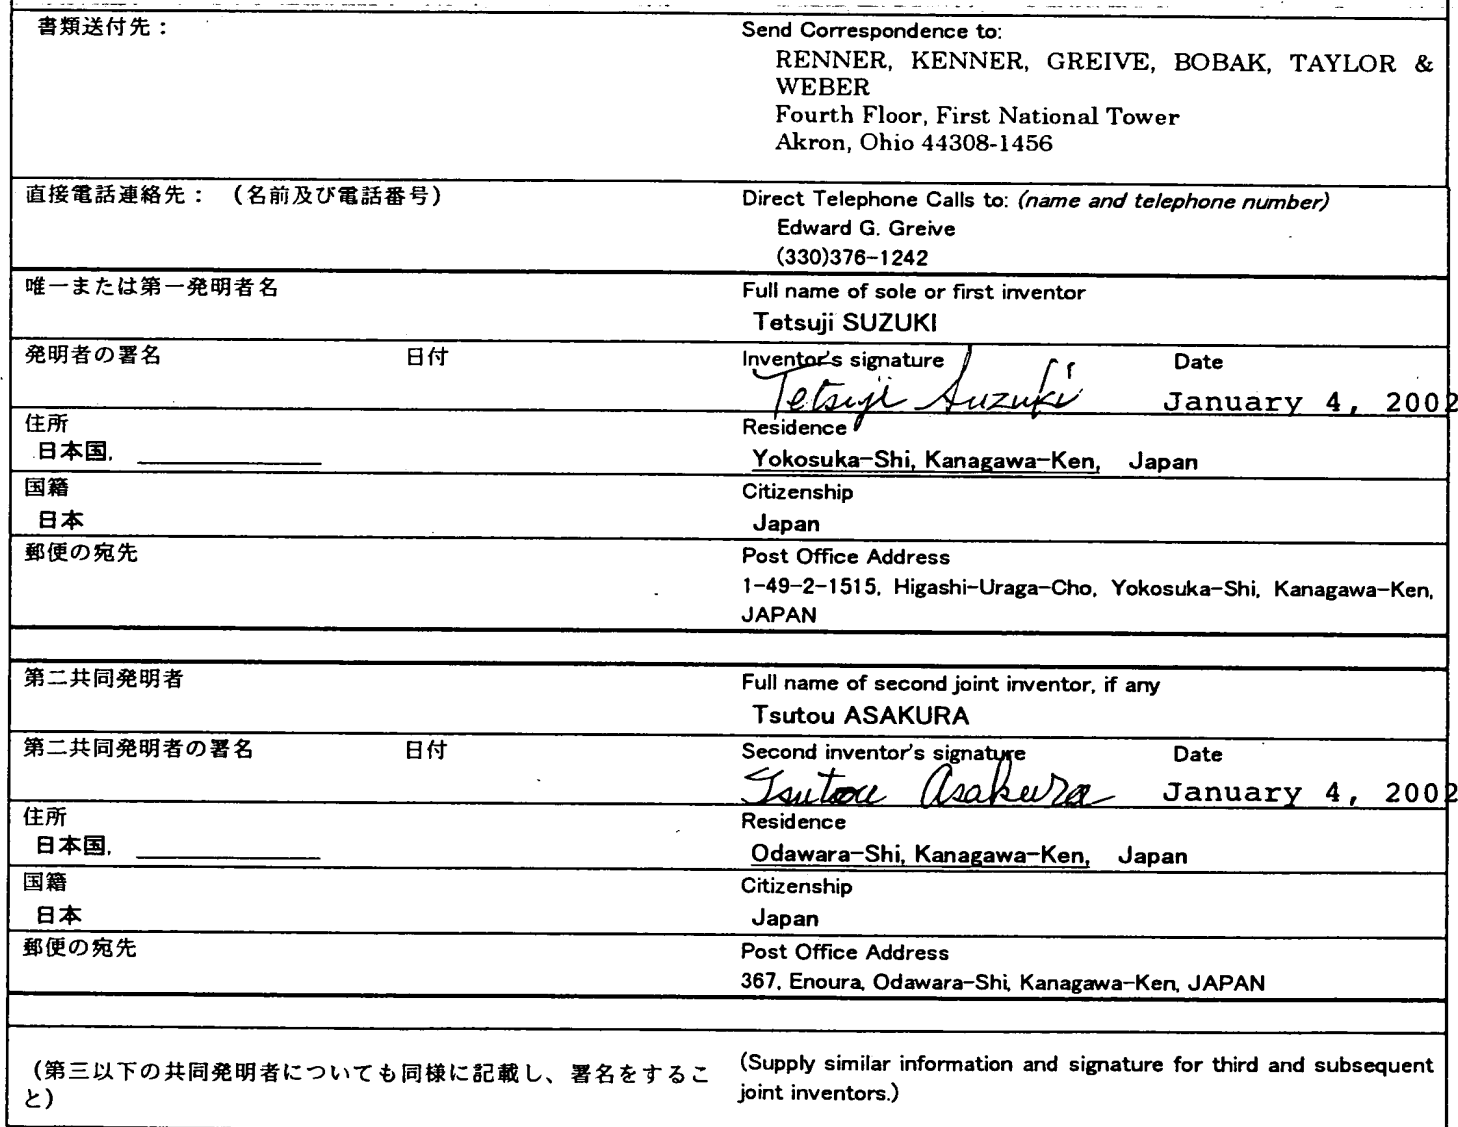 書類送付先：
Send Correspondence to:
RENNER, KENNER, GREIVE, BOBAK, TAYLOR &
WEBER
Fourth Floor, First National Tower
Akron, Ohio 44308-1456
直接電話連絡先： （名前及び電話番号）
Direct Telephone Calls to: (name and telephone number)
Edward G. Greive
(330)376-1242
唯一または第一発明者名
Full name of sole or first inventor
Tetsuji SUZUKI
発明者の署名 日付
Inventor's signature Date
Tetsuji Suzuki January 4, 2002
住所
日本国,
Residence
Yokosuka-Shi, Kanagawa-Ken, Japan
国籍
日本
Citizenship
Japan
郵便の宛先
Post Office Address
1-49-2-1515, Higashi-Uraga-Cho, Yokosuka-Shi, Kanagawa-Ken,
JAPAN
第二共同発明者
Full name of second joint inventor, if any
Tsutou ASAKURA
第二共同発明者の署名 日付
Second inventor's signature Date
Tsutou Asakura January 4, 2002
住所
日本国,
Residence
Odawara-Shi, Kanagawa-Ken, Japan
国籍
日本
Citizenship
Japan
郵便の宛先
Post Office Address
367, Enoura, Odawara-Shi, Kanagawa-Ken, JAPAN
（第三以下の共同発明者についても同様に記載し、署名をするこ
と）
(Supply similar information and signature for third and subsequent
joint inventors.)